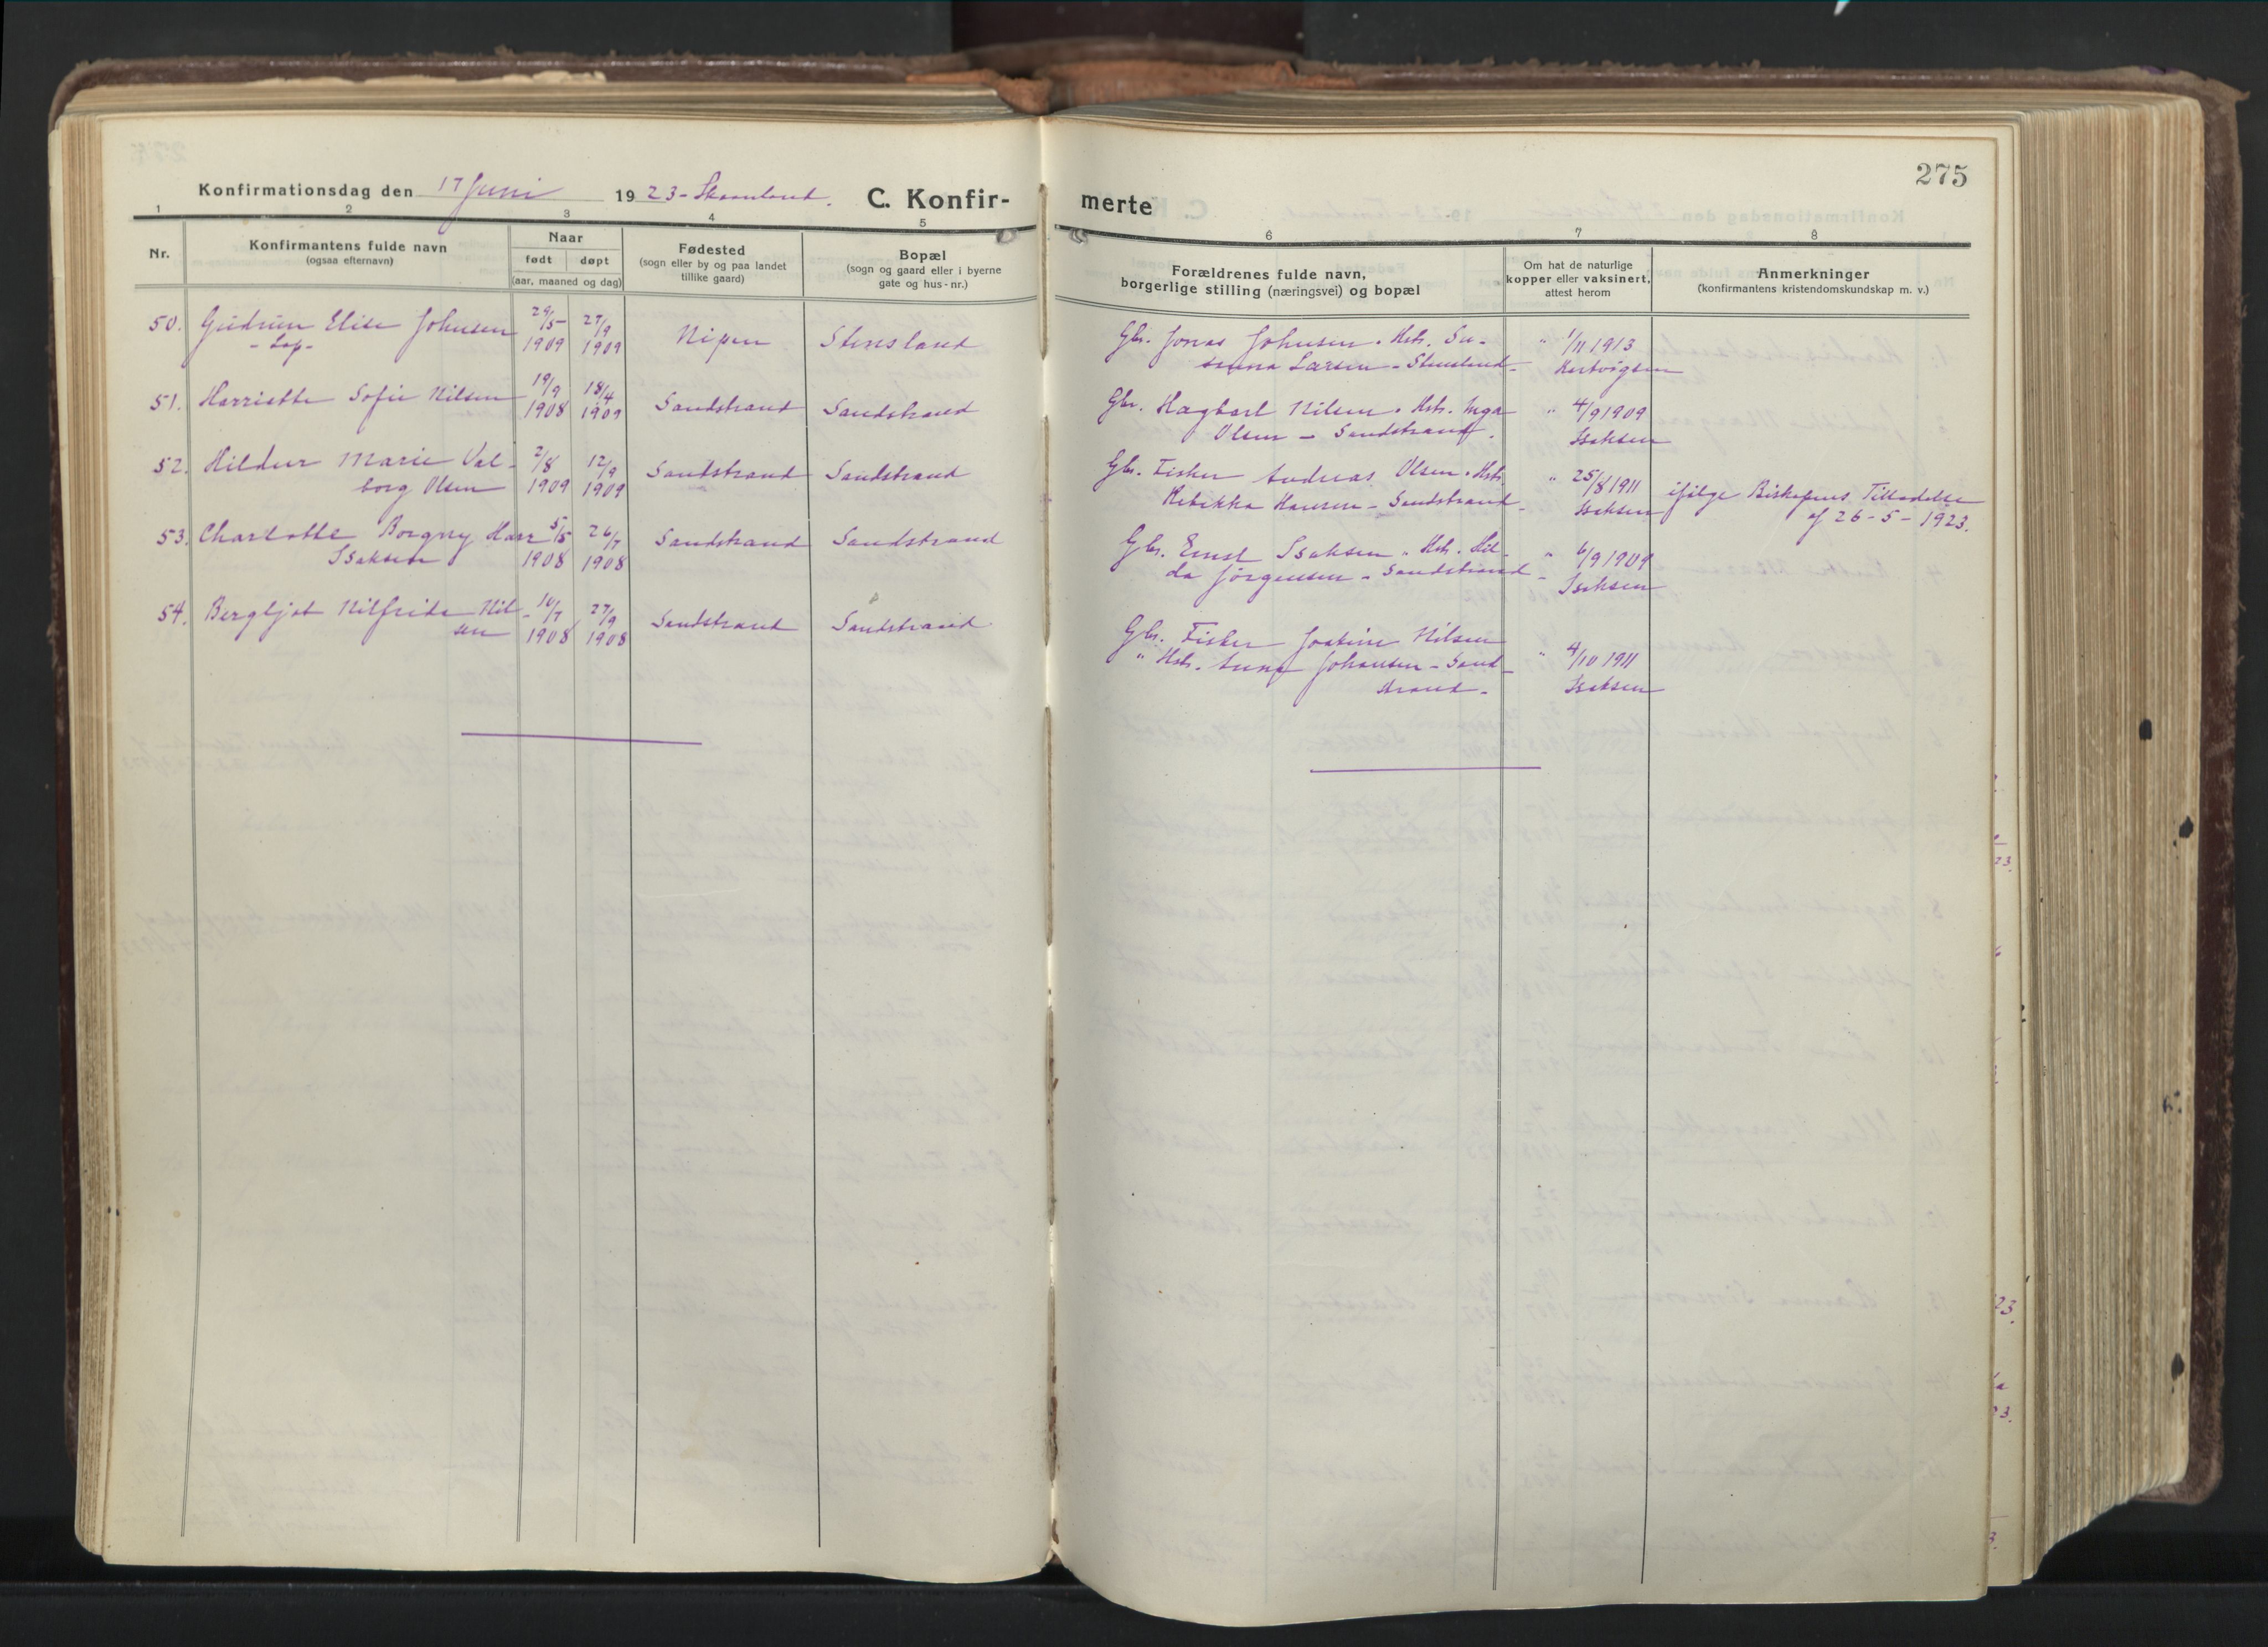 275
Konfirmationsdag den 17 Juni 1923 - Skaanland. C. Konfir- merte
1 2 3 4 5 6 7 8
Nr.
Konfirmantens fulde navn
(ogsaa efternavn)
Naar
født døpt
(aar, maaned og dag)
Fødested
(sogn eller by og paa landet
tillike gaard)
Bopæl
(sogn og gaard eller i byerne
gate og hus-nr.)
Forældrenes fulde navn,
borgerlige stilling (næringsvei) og bopæl
Om hat de naturlige
kopper eller vaksinert,
attest herom
Anmerkninger
(konfirmantens kristendomskundskap m. v.)
50. Gudrun Elise Johnsen 29/5- 27/9 Nipen Stensland Gbr. Jonas Johnsen . Hstr. Su- " 1/11 1913
- Lap - 1909 1909 sanna Larsen - Stensland - Hertvigsen
51. Harriette Sofie Nilsen 19/9 18/4 Sandstrand Sandstrand Gbr. Hagbart Nilsen . Hstr. Inga " 4/9 1909
1908 1909 Olsen - Sandstrand. Isaksen
52. Hildur Marie Val- 2/8 12/9 Sandstrand Sandstrand Gbr. Fisker Andreas Olsen . Hstr. " 25/8 1911
borg Olsen 1909 1909 Rebekka Hansen - Sandstrand - Isaksen ifølge Biskopens Tilladelse
af 26-5-1923.
53. Charlotte Borgny Harr 5/5 26/7 Sandstrand Sandstrand Gbr. Ernst Isaksen " Hstr. Hil- " 6/9 1909
Isaksen 1908 1908 da Jørgensen - Sandstrand - Isaksen
54. Bergljot Nilfride Nil- 10/7 27/9 Sandstrand Sandstrand Gbr. Fisker Joakim Nilsen
sen 1908 1908 " Hstr. Anna Johansen - Sand- " 4/10 1911
strand - Isaksen